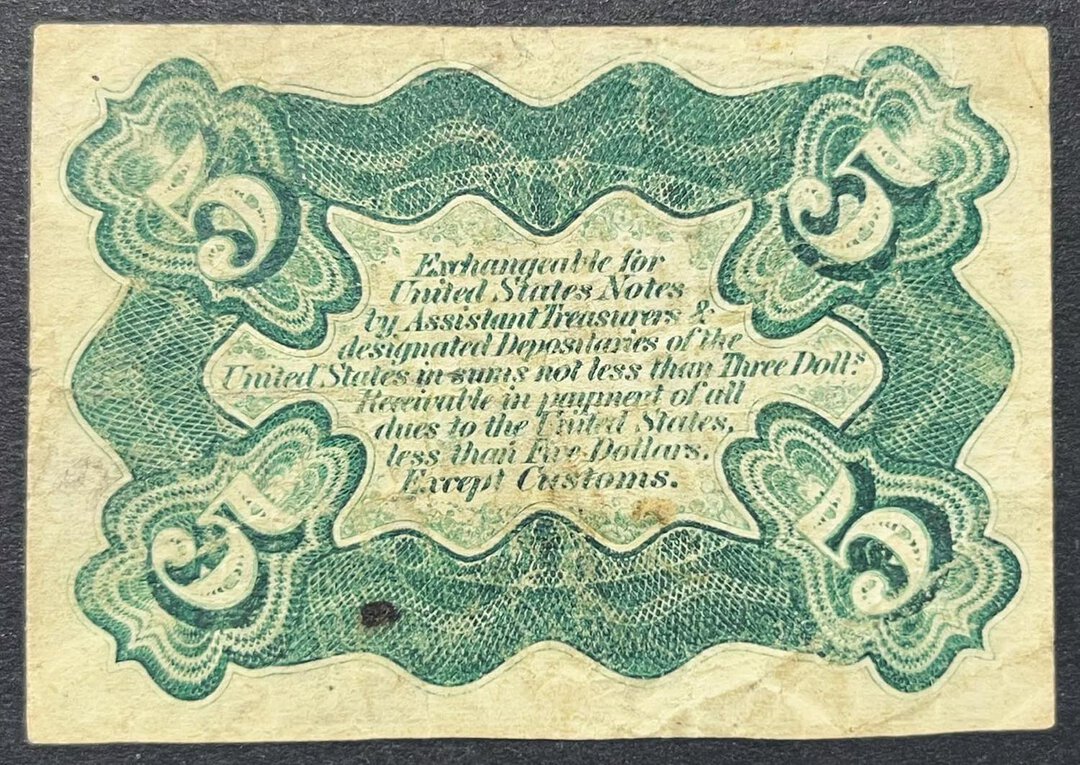 5 5
Exchangeable for
United States Notes
by Assistant Treasurers &
designated Depositaries of the
United States in sums not less than Three Dolls.
Receivable in payment of all
dues to the United States,
less than Five Dollars,
Except Customs.
5 5